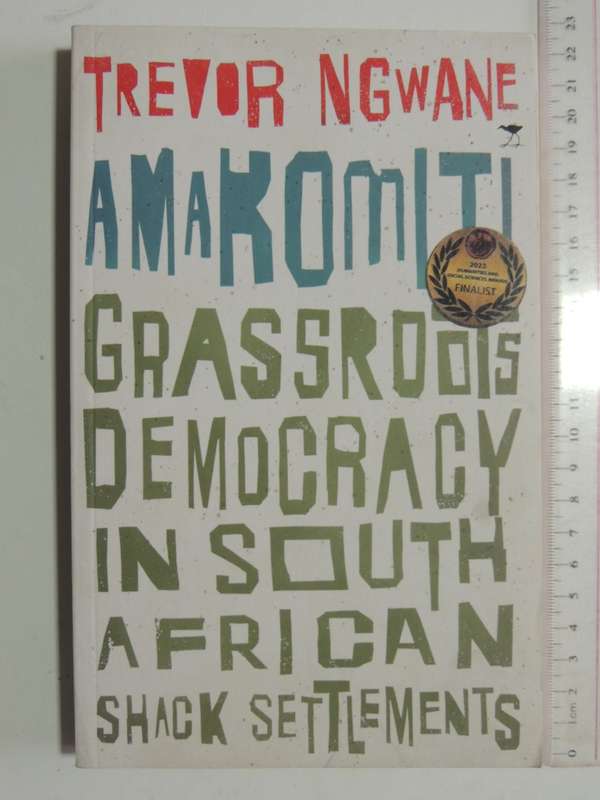 TREVOR NGWANE
AMAKOMITI
2022
HUMANITIES AND
SOCIAL SCIENCES AWARDS
FINALIST
GRASSROOTS
DEMOCRACY
IN SOUTH
AFRICAN
SHACK SETTLEMENTS
23
22
21
20
19
18
17
16
15
11
10
9
8
7
6
5
4
3
2
1cm
0